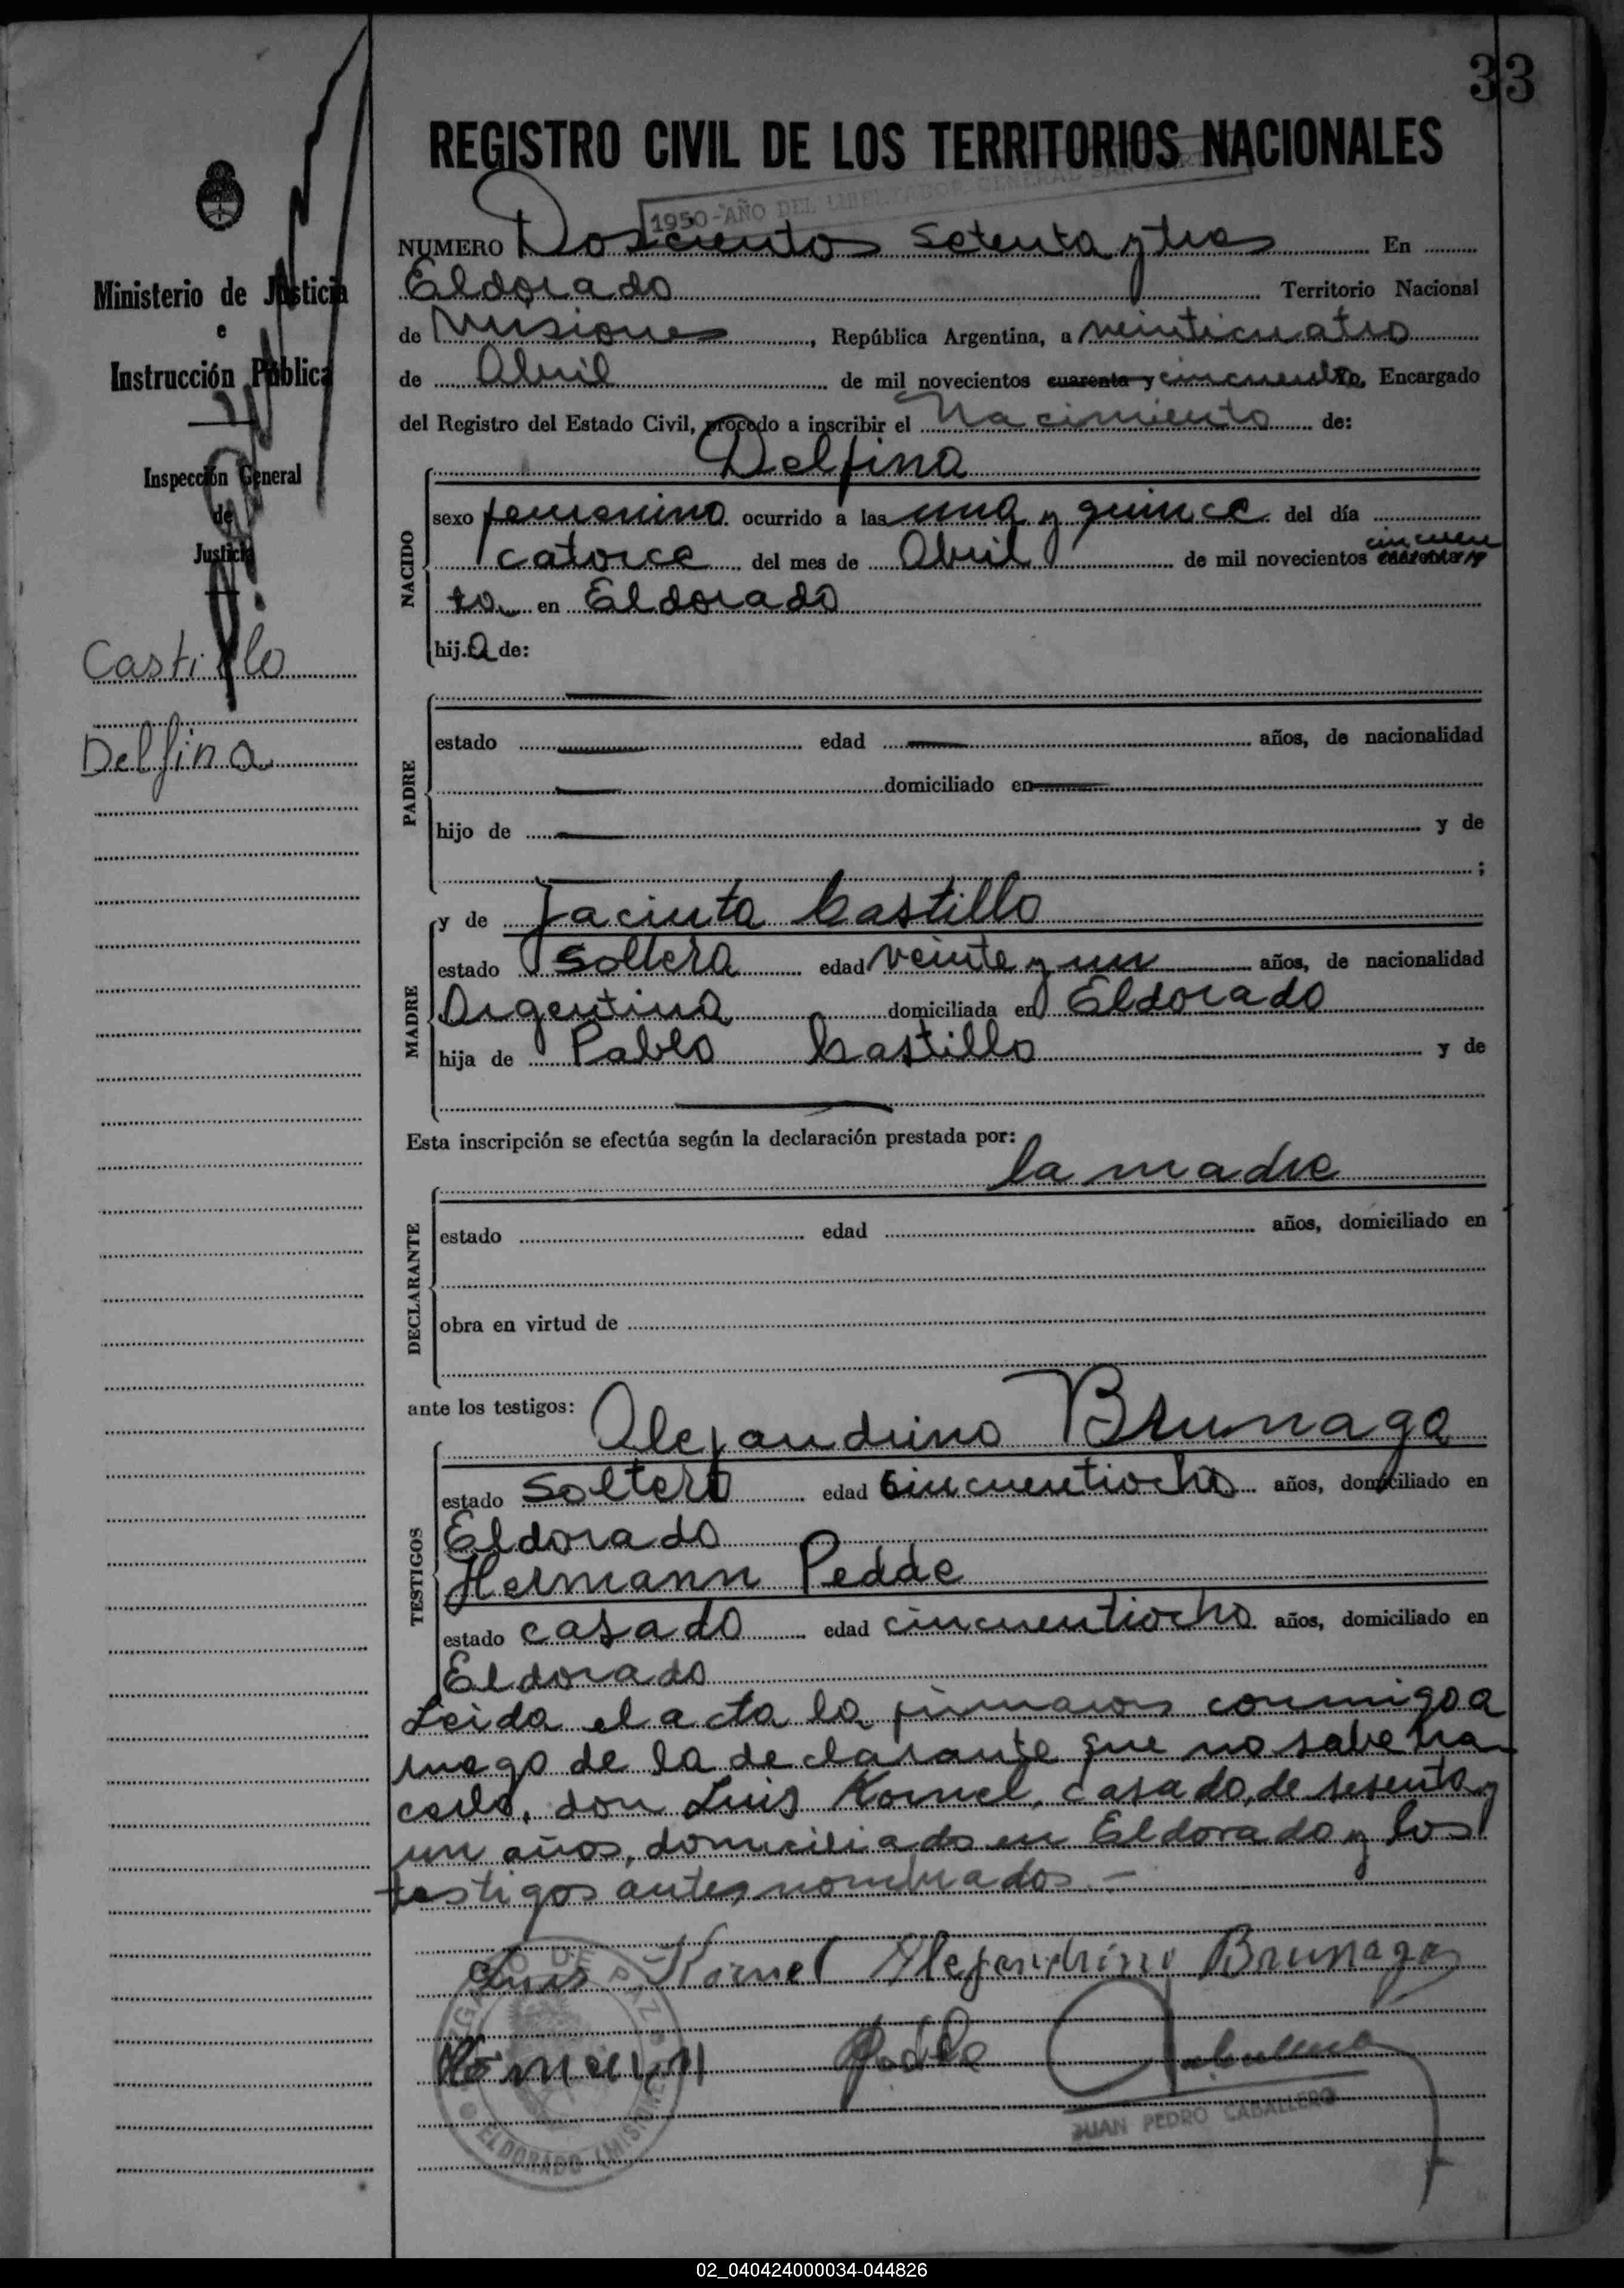 33
REGISTRO CIVIL DE LOS TERRITORIOS NACIONALES
1950-AÑO DEL LIBERTADOR GENERAL SAN
NUMERO Doscientos setenta y tres En
Eldorado Territorio Nacional
de Misiones, República Argentina, a veinticuatro
de Abril de mil novecientos cuarenta y cincuenta, Encargado
del Registro del Estado Civil, procedo a inscribir el Nacimiento de:
Ministerio de Justicia
e
Instrucción Pública
Inspección General
de
Justicia
Castillo
Delfina
NACIDO
Delfina
sexo femenino ocurrido a las una y quince del día
catorce del mes de Abril de mil novecientos cuarenta y cincuen
ta en Eldorado
hija de:
PADRE
estado edad años, de nacionalidad
domiciliado en
hijo de y de
;
MADRE
y de Jacinta Castillo
estado soltera edad veinte y un años, de nacionalidad
Argentina domiciliada en Eldorado
hija de Pablo Castillo y de
Esta inscripción se efectúa según la declaración prestada por:
la madre
DECLARANTE
estado edad años, domiciliado en
obra en virtud de
ante los testigos:
TESTIGOS
Alejandrino Brunaga
estado soltero edad cincuentiocho años, domiciliado en
Eldorado
Hermann Pedde
estado casado edad cincuentiocho años, domiciliado en
Eldorado
Leida el acta la firmaron conmigo a
ruego de la declarante que no sabe ha
cerlo, don Luis Kornel, casado, de sesenta y
un años, domiciliado en Eldorado y los
testigos antes nombrados.-
Luis Kornel Alejandrino Brunaga
JUAN PEDRO CABALLERO
DE PAZ
ELDORADO (MISIONES)
02_040424000034-044826